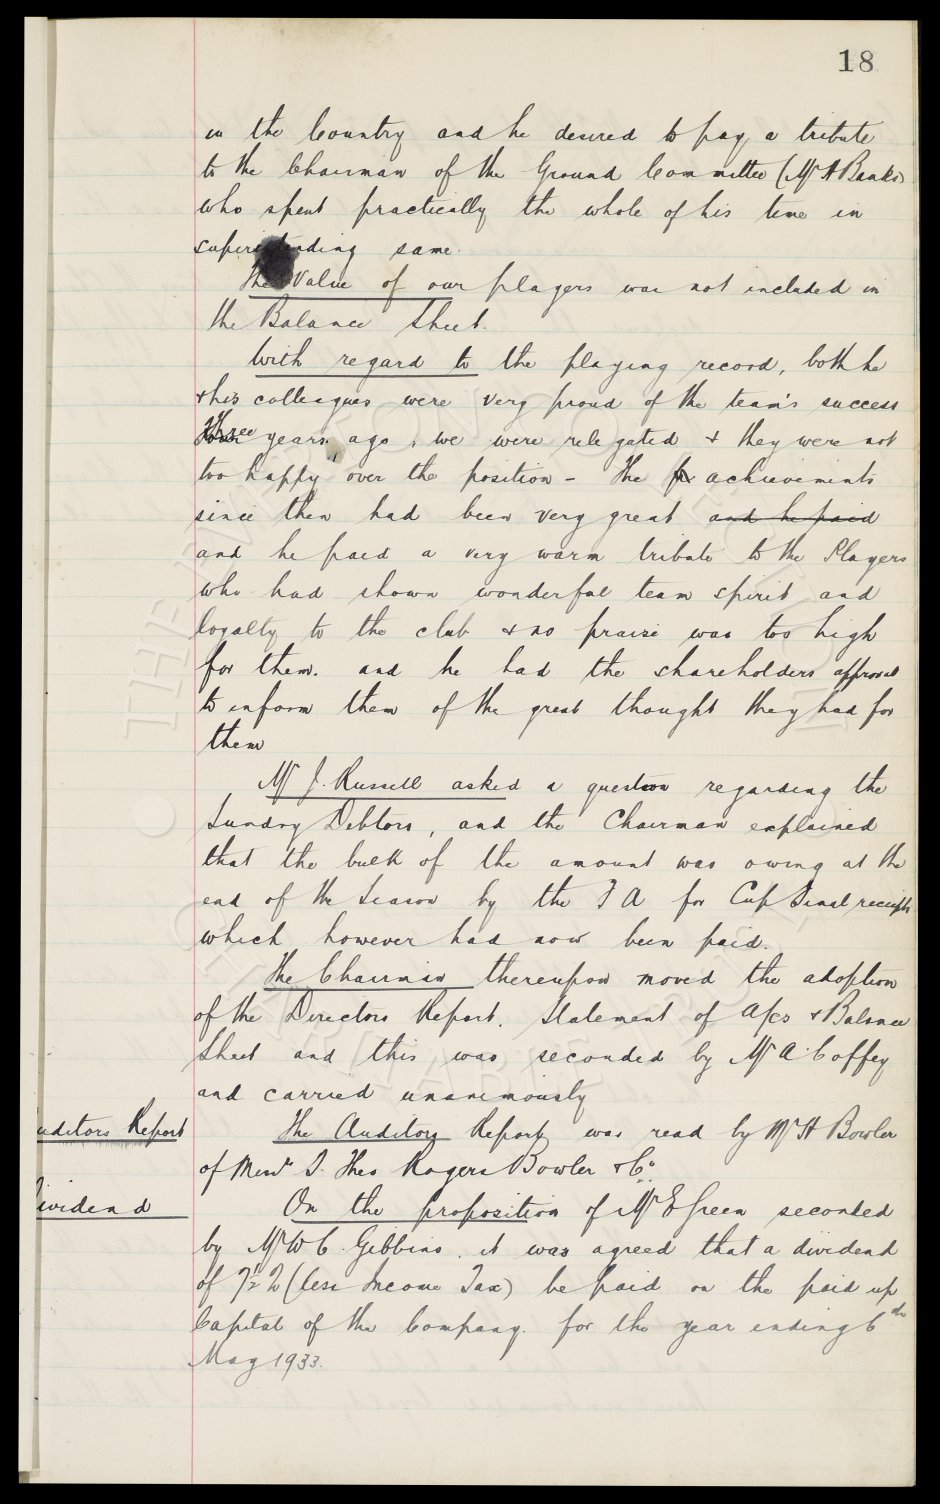 18
in the Country and he desired to pay a tribute
to the Chairman of the Ground Committee (Mr A Banks)
who spent practically the whole of his time in
superintending same.
The Value of our players was not included in
the Balance Sheet.
With regard to the playing record, both he
& his colleagues were very proud of the team's success
Three years ago, we were relegated & they were not
too happy over the position - The achievements
since then had been very great and he paid
and he paid a very warm tribute to the Players
who had shown wonderful team spirit and
loyalty to the club & no praise was too high
for them. and he had the shareholders approval
to inform them of the great thought they had for
them
Mr J. Russell asked a question regarding the
Sundry Debtors, and the Chairman explained
that the bulk of the amount was owing at the
end of the Season by the F A for Cup Final receipts
which however had now been paid.
The Chairman thereupon moved the adoption
of the Directors Report, Statement of A/cs & Balance
Sheet and this was seconded by Mr A. Coffey
and carried unanimously
uditors Report
The Auditors Report was read by Mr H Bowler
of Messrs J. Theo Rogers Bowler & Co.
ividend
On the proposition of Mr E Green seconded
by Mr W C. Gibbins, it was agreed that a dividend
of 7½% (less Income Tax) be paid on the paid up
Capital of the Company. for the year ending 6th
May 1933.
THE EVERTON